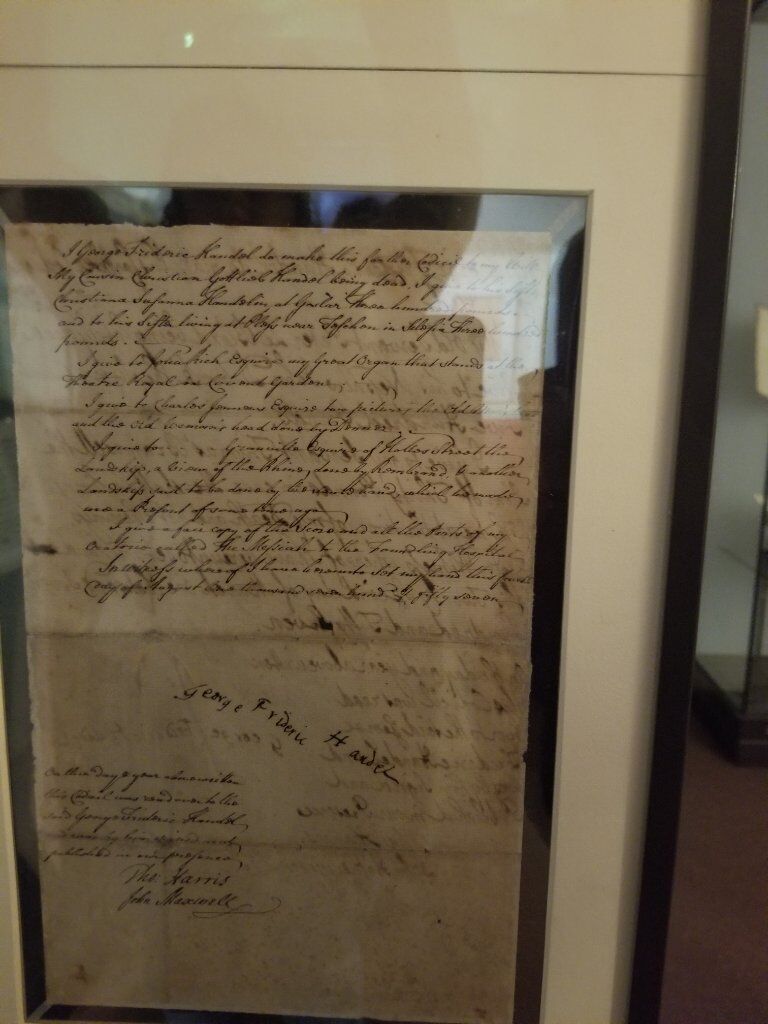 I George Frideric Handel do make this farther Codicil to my Will.
My Cousin Christian Gottlieb Handel being dead, I give to his
Christiana Susanna Handelin at Goslar Three hundred pounds,
and to his Sister living at Pless near Teschen in Silesia Three hundred
pounds.
I give to John Rich Esquire my Great Organ that stands at the
Theatre Royal in Covent Garden,
I give to Charles Jennens Esquire two pictures the Old Man's
and the Old Woman's head done by Denner,
I give to Granville Esquire of Holles Street the
Landskip, a view of the Rhine, done by Rembrand, & another
Landskip said to be done by the same hand, which he made
me a Present of some time ago,
I give a fair copy of the Score and all the Parts of my
Oratorio called The Messiah to the Foundling Hospital
In witness whereof I have hereunto set my hand this fourth
day of August One thousand seven hund. fifty seven
George Frideric Handel
On the day & year above written
this Codicil was read over to the
said George Frideric Handel
and was by him signed and
published in our presence,
Tho: Harris
John Maxwell